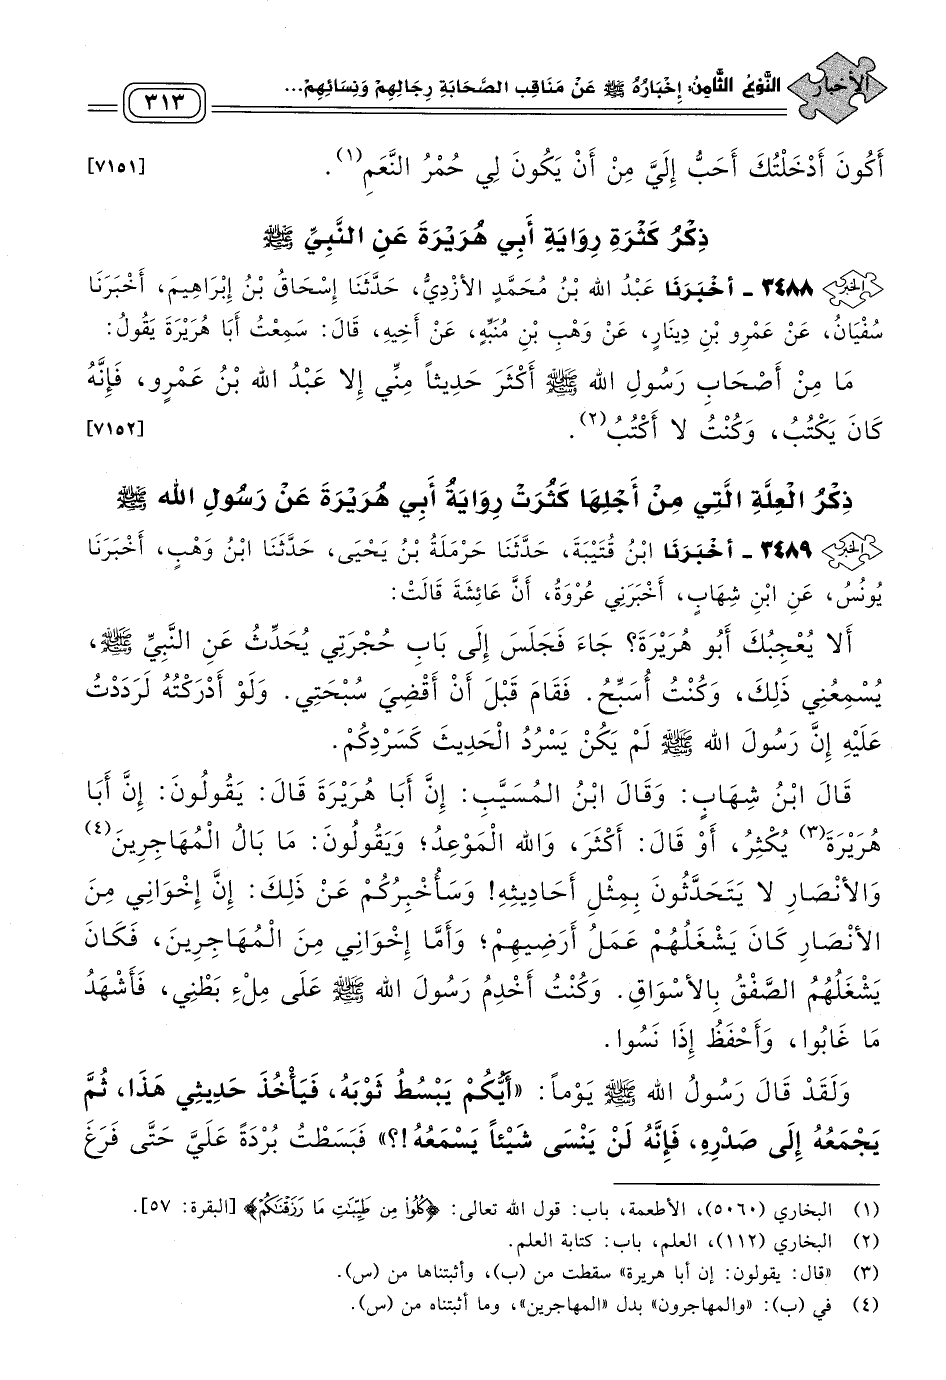 الأخبار النَّوْعُ الثَّامِنُ: إِخْبَارُهُ ﷺ عَنْ مَنَاقِبِ الصَّحَابَةِ رِجَالِهِمْ وَنِسَائِهِمْ... ٣١٣
أَكُونَ أَدْخَلْتُكَ أَحَبُّ إِلَيَّ مِنْ أَنْ يَكُونَ لِي حُمْرُ النَّعَمِ(١). [٧١٥١]
ذِكْرُ كَثْرَةِ رِوَايَةِ أَبِي هُرَيْرَةَ عَنِ النَّبِيِّ ﷺ
٣٤٨٨ - أَخْبَرَنَا عَبْدُ الله بْنُ مُحَمَّدٍ الأَزْدِيُّ، حَدَّثَنَا إِسْحَاقُ بْنُ إِبْرَاهِيمَ، أَخْبَرَنَا
سُفْيَانُ، عَنْ عَمْرِو بْنِ دِينَارٍ، عَنْ وَهْبِ بْنِ مُنَبِّهٍ، عَنْ أَخِيهِ، قَالَ: سَمِعْتُ أَبَا هُرَيْرَةَ يَقُولُ:
مَا مِنْ أَصْحَابِ رَسُولِ الله ﷺ أَكْثَرَ حَدِيثاً مِنِّي إِلا عَبْدُ الله بْنُ عَمْرٍو، فَإِنَّهُ
كَانَ يَكْتُبُ، وَكُنْتُ لا أَكْتُبُ(٢). [٧١٥٢]
ذِكْرُ الْعِلَّةِ الَّتِي مِنْ أَجْلِهَا كَثُرَتْ رِوَايَةُ أَبِي هُرَيْرَةَ عَنْ رَسُولِ الله ﷺ
٣٤٨٩ - أَخْبَرَنَا ابْنُ قُتَيْبَةَ، حَدَّثَنَا حَرْمَلَةُ بْنُ يَحْيَى، حَدَّثَنَا ابْنُ وَهْبٍ، أَخْبَرَنَا
يُونُسُ، عَنِ ابْنِ شِهَابٍ، أَخْبَرَنِي عُرْوَةُ، أَنَّ عَائِشَةَ قَالَتْ:
أَلا يُعْجِبُكَ أَبُو هُرَيْرَةَ؟ جَاءَ فَجَلَسَ إِلَى بَابِ حُجْرَتِي يُحَدِّثُ عَنِ النَّبِيِّ ﷺ،
يُسْمِعُنِي ذَلِكَ، وَكُنْتُ أُسَبِّحُ. فَقَامَ قَبْلَ أَنْ أَقْضِيَ سُبْحَتِي. وَلَوْ أَدْرَكْتُهُ لَرَدَدْتُ
عَلَيْهِ إِنَّ رَسُولَ الله ﷺ لَمْ يَكُنْ يَسْرُدُ الْحَدِيثَ كَسَرْدِكُمْ.
قَالَ ابْنُ شِهَابٍ: وَقَالَ ابْنُ الْمُسَيَّبِ: إِنَّ أَبَا هُرَيْرَةَ قَالَ: يَقُولُونَ: إِنَّ أَبَا
هُرَيْرَةَ(٣) يُكْثِرُ، أَوْ قَالَ: أَكْثَرَ، وَالله الْمَوْعِدُ؛ وَيَقُولُونَ: مَا بَالُ الْمُهَاجِرِينَ(٤)
وَالأَنْصَارِ لا يَتَحَدَّثُونَ بِمِثْلِ أَحَادِيثِهِ! وَسَأُخْبِرُكُمْ عَنْ ذَلِكَ: إِنَّ إِخْوَانِي مِنَ
الأَنْصَارِ كَانَ يَشْغَلُهُمْ عَمَلُ أَرَضِيهِمْ؛ وَأَمَّا إِخْوَانِي مِنَ الْمُهَاجِرِينَ، فَكَانَ
يَشْغَلُهُمُ الصَّفْقُ بِالأَسْوَاقِ. وَكُنْتُ أَخْدِمُ رَسُولَ الله ﷺ عَلَى مِلْءِ بَطْنِي، فَأَشْهَدُ
مَا غَابُوا، وَأَحْفَظُ إِذَا نَسُوا.
وَلَقَدْ قَالَ رَسُولُ الله ﷺ يَوْماً: «أَيُّكُمْ يَبْسُطُ ثَوْبَهُ، فَيَأْخُذَ حَدِيثِي هَذَا، ثُمَّ
يَجْمَعُهُ إِلَى صَدْرِهِ، فَإِنَّهُ لَنْ يَنْسَى شَيْئاً يَسْمَعُهُ!؟» فَبَسَطْتُ بُرْدَةً عَلَيَّ حَتَّى فَرَغَ
(١) البخاري (٥٠٦٠)، الأطعمة، باب: قول الله تعالى: ﴿كُلُوا مِن طَيِّبَاتِ مَا رَزَقْنَاكُمْ﴾ [البقرة: ٥٧].
(٢) البخاري (١١٢)، العلم، باب: كتابة العلم.
(٣) «قال: يقولون: إن أبا هريرة» سقطت من (ب)، وأثبتناها من (س).
(٤) في (ب): «والمهاجرون» بدل «المهاجرين»، وما أثبتناه من (س).